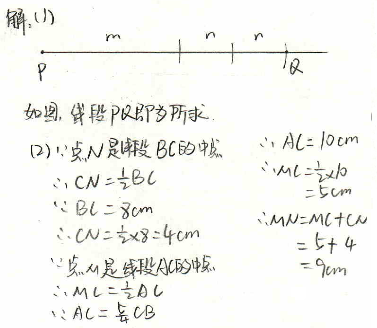 解:(1)
m n n
P Q
如图,线段PQ即为所求.
(2)∵点N是线段BC的中点
∴CN=½BC
∵BC=8cm
∴CN=½×8=4cm
∵点M是线段AC的中点
∴MC=½AC
∵AC=5/4CB
∴AC=10cm
∴MC=½×10
=5cm
∴MN=MC+CN
=5+4
=9cm